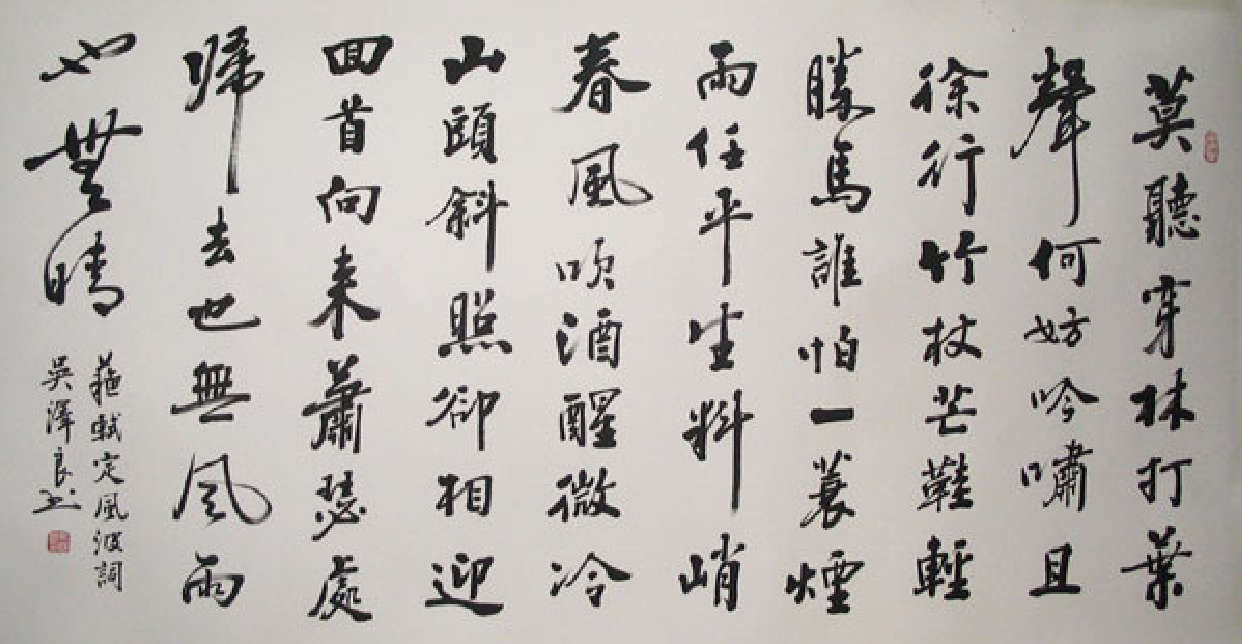 莫聽穿林打葉
聲何妨吟嘯且
徐行竹杖芒鞋輕
勝馬誰怕一蓑煙
雨任平生料峭
春風吹酒醒微冷
山頭斜照卻相迎
回首向来蕭瑟處
歸去也無風雨
也無晴
蘇軾定風波詞
吳澤良书